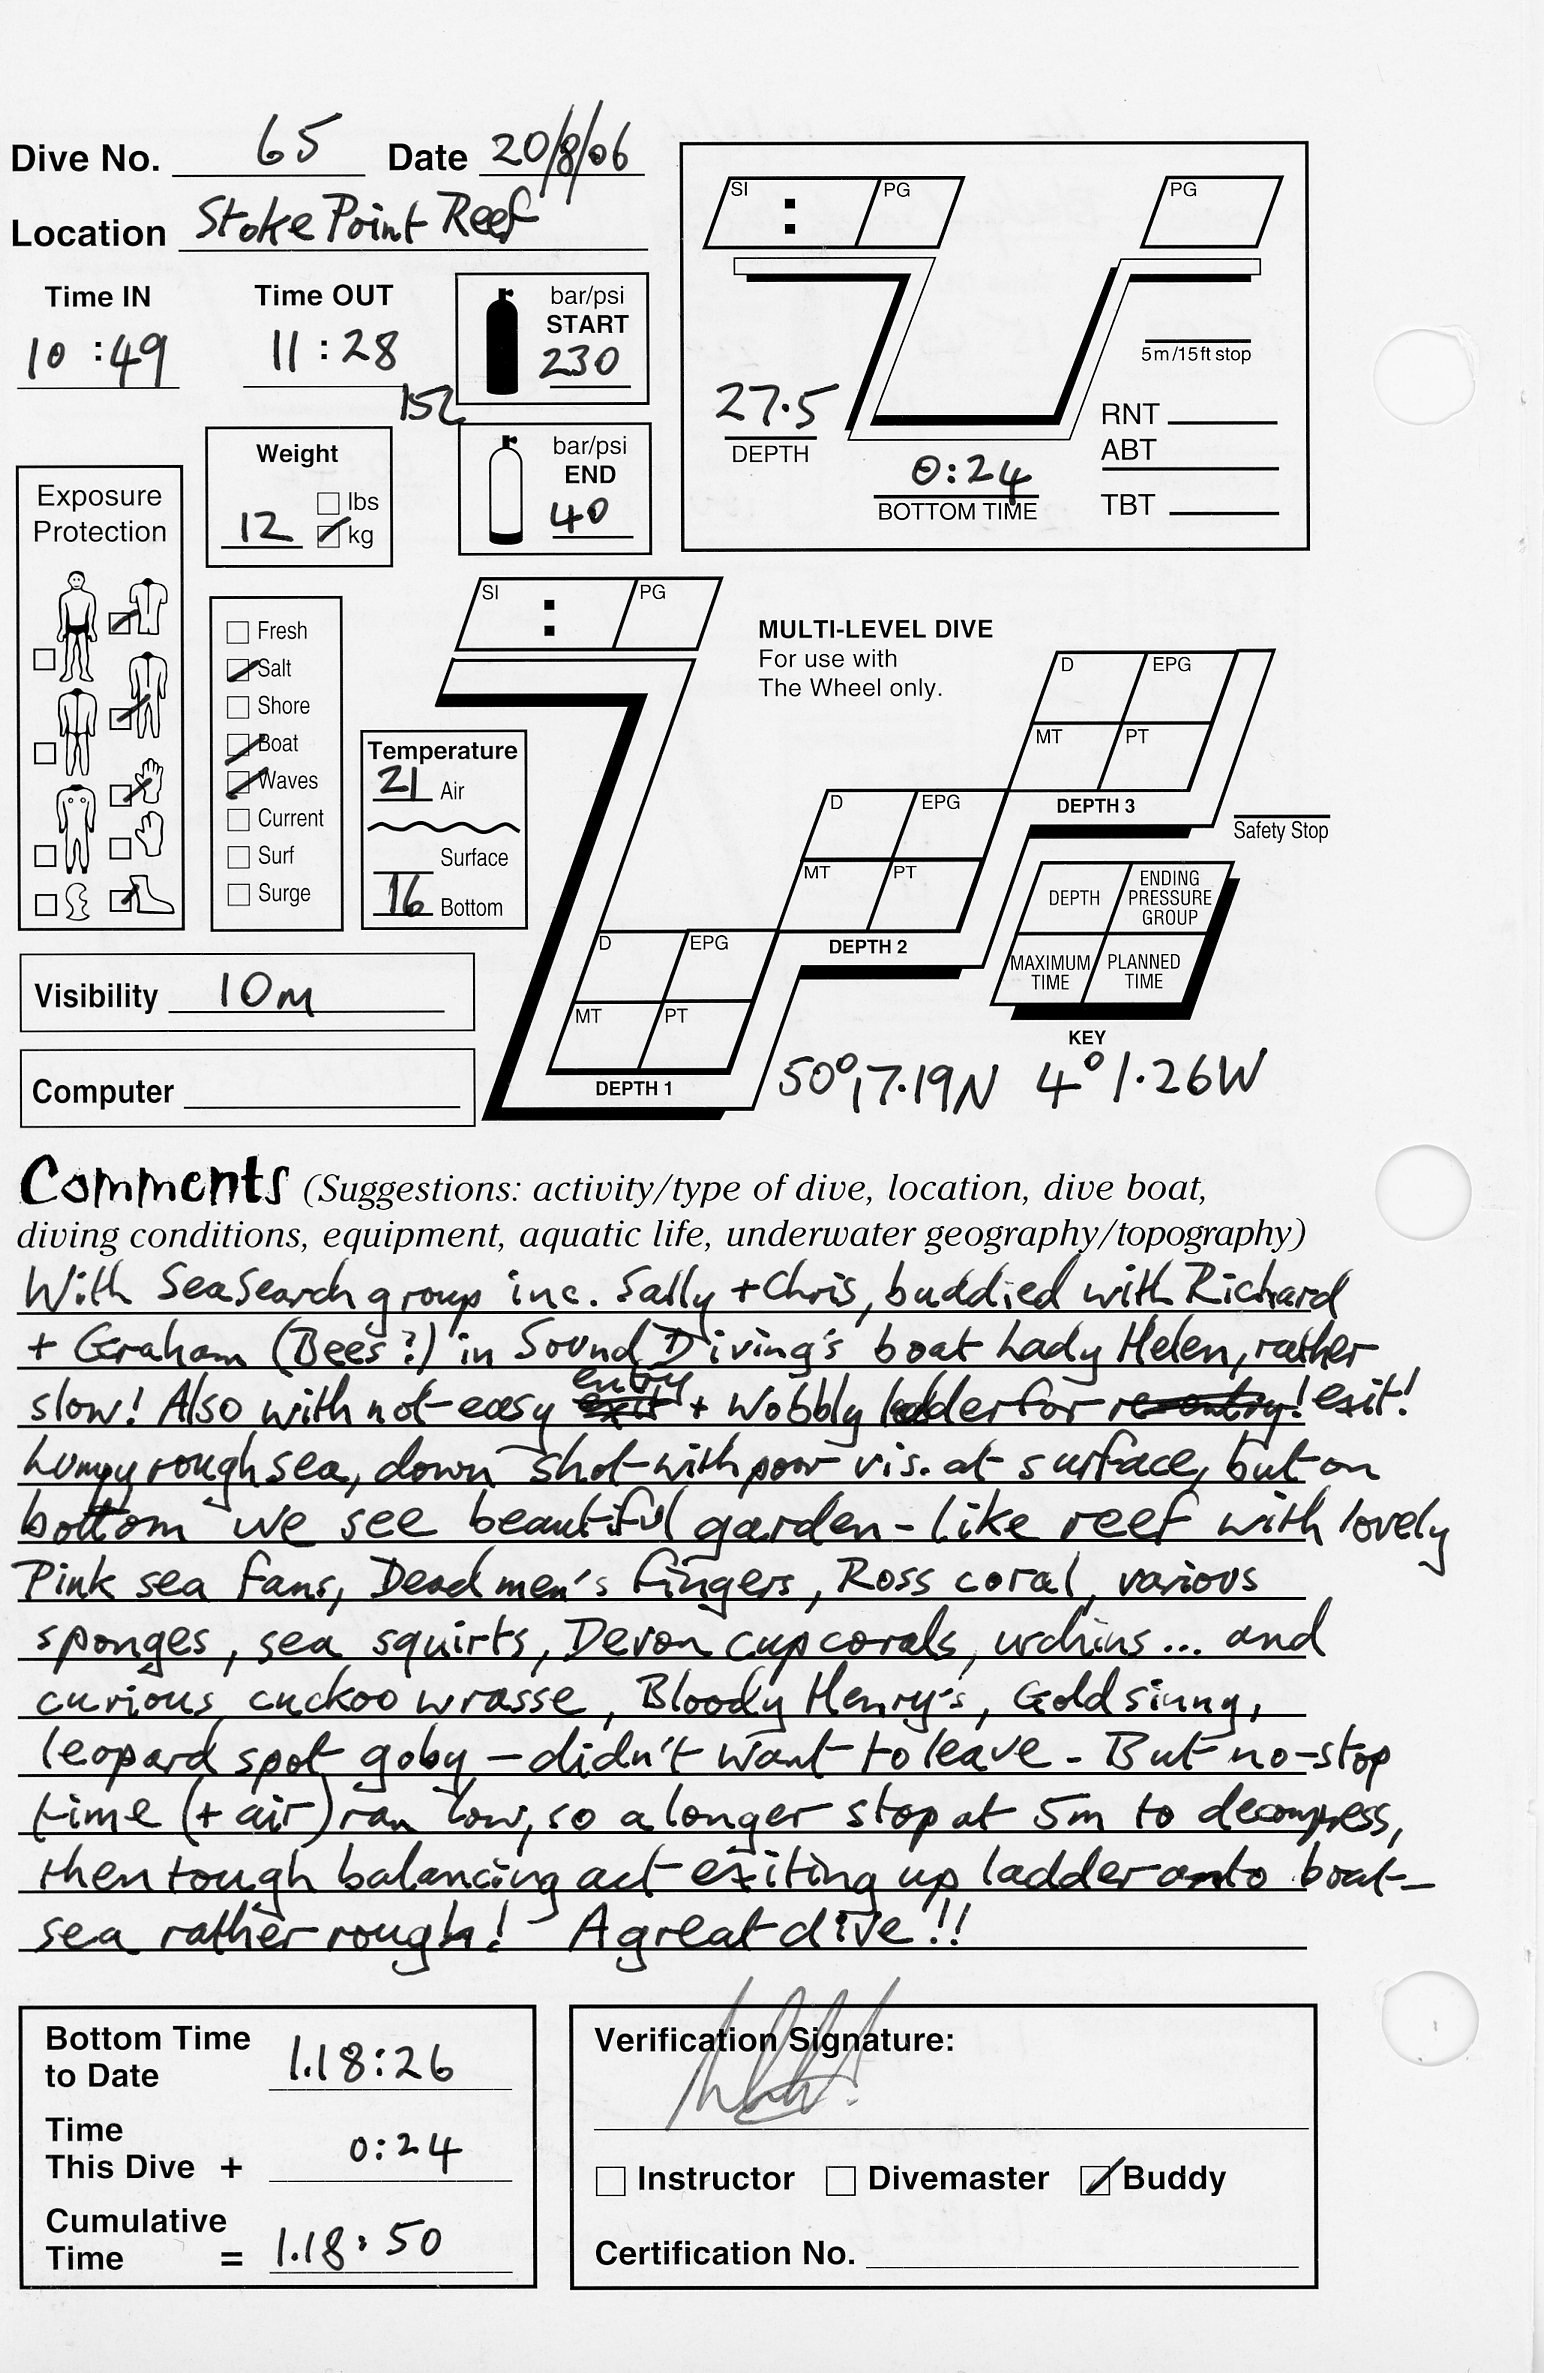 Dive No. 65 Date 20/8/06
Location Stoke Point Reef
Time IN Time OUT
10:49 11:28
15L
bar/psi
START
230
bar/psi
END
40
Weight
12
lbs
kg
Exposure
Protection
Fresh
Salt
Shore
Boat
Waves
Current
Surf
Surge
Temperature
21 Air
Surface
16 Bottom
Visibility 10m
Computer
SI : PG
PG
5m/15ft stop
27.5
DEPTH
0:24
BOTTOM TIME
RNT
ABT
TBT
SI : PG
MULTI-LEVEL DIVE
For use with
The Wheel only.
D EPG
MT PT
DEPTH 3
D EPG
MT PT
DEPTH 2
D EPG
MT PT
DEPTH 1
Safety Stop
DEPTH
ENDING
PRESSURE
GROUP
MAXIMUM
TIME
PLANNED
TIME
KEY
50°17.19N 4°1.26W
Comments (Suggestions: activity/type of dive, location, dive boat,
diving conditions, equipment, aquatic life, underwater geography/topography)
With SeaSearch group inc. Sally + Chris, buddied with Richard
+ Graham (Bees?) in Sound Diving's boat Lady Helen, rather
slow! Also with not-easy entry + wobbly ladder for exit!
Lumpy rough sea, down shot with poor vis. at surface, but on
bottom we see beautiful garden-like reef with lovely
Pink sea fans, Dead men's fingers, Ross coral, various
sponges, sea squirts, Devon cup corals, urchins... and
curious cuckoo wrasse, Bloody Henry's, Goldsinny,
leopard spot goby - didn't want to leave. But no-stop
time (+ air) ran low, so a longer stop at 5m to decompress,
then tough balancing act exiting up ladder onto boat-
sea rather rough! A great dive!!
Bottom Time
to Date 1.18:26
Time
This Dive + 0:24
Cumulative
Time = 1.18:50
Verification Signature:
Instructor Divemaster Buddy
Certification No.